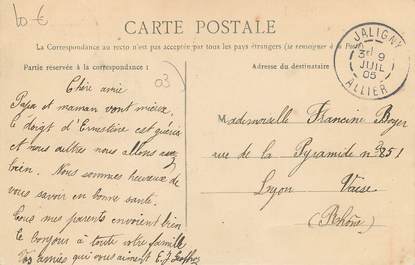 10 €
CARTE POSTALE
La Correspondance au recto n'est pas acceptée par tous les pays étrangers (se renseigner à la Poste)
Partie réservée à la correspondance :
Adresse du destinataire
JALIGNY
9
JUIL
05
ALLIER
03
Chère amie
Papa et maman vont mieux,
le doigt d'Ernestine est guéri
et nous autres nous allons assez
bien. Nous sommes heureux de
vous savoir en bonne santé.
Tous mes parents envoient bien
le bonjour à toute votre famille
Vos amies qui vous aiment E. J.
Mademoiselle Francine Boyer
rue de la Pyramide n°
Lyon Vaise
(Rhône)